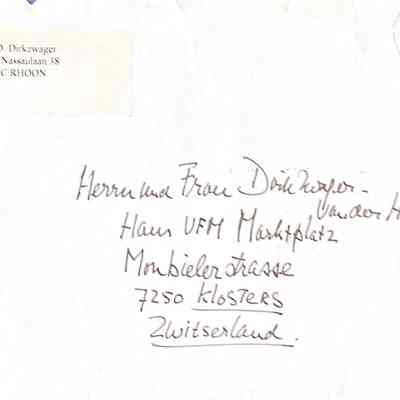 D. Dirkzwager
Nassaulaan 38
C RHOON
Herrn und Frau Dirkzwager-
van der H
Haus VFM Marktplatz
Monbielerstrasse
7250 KLOSTERS
Zwitserland.